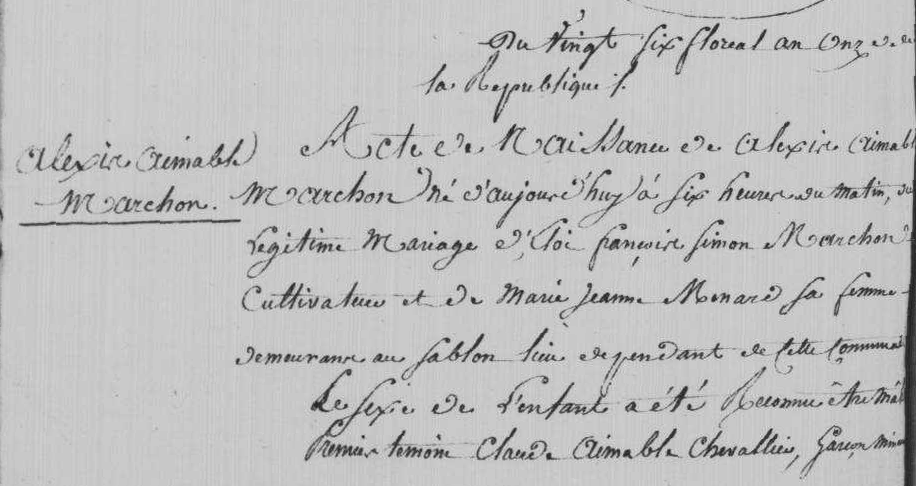 Du Vingt six floreal an Onze de
la Republique /.
Alexis Aimable
Marchon.
Acte de Naissance de Alexis Aimabl
Marchon né d'aujourd'huy à six heures du matin, du
Legitime Mariage d'Eloi françois simon Marchon
Cultivateur et de Marie Jeanne Menard sa femme
demeurans au sablon lieu dependant de Cette Commune
Le sexe de l'enfant a été Reconnu être mâl
Premier temoin Claude Aimable Chevallier, Garçon